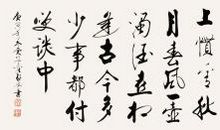 上慣看秋
月春風一壺
濁酒喜相
逢古今多
少事都付
笑談中